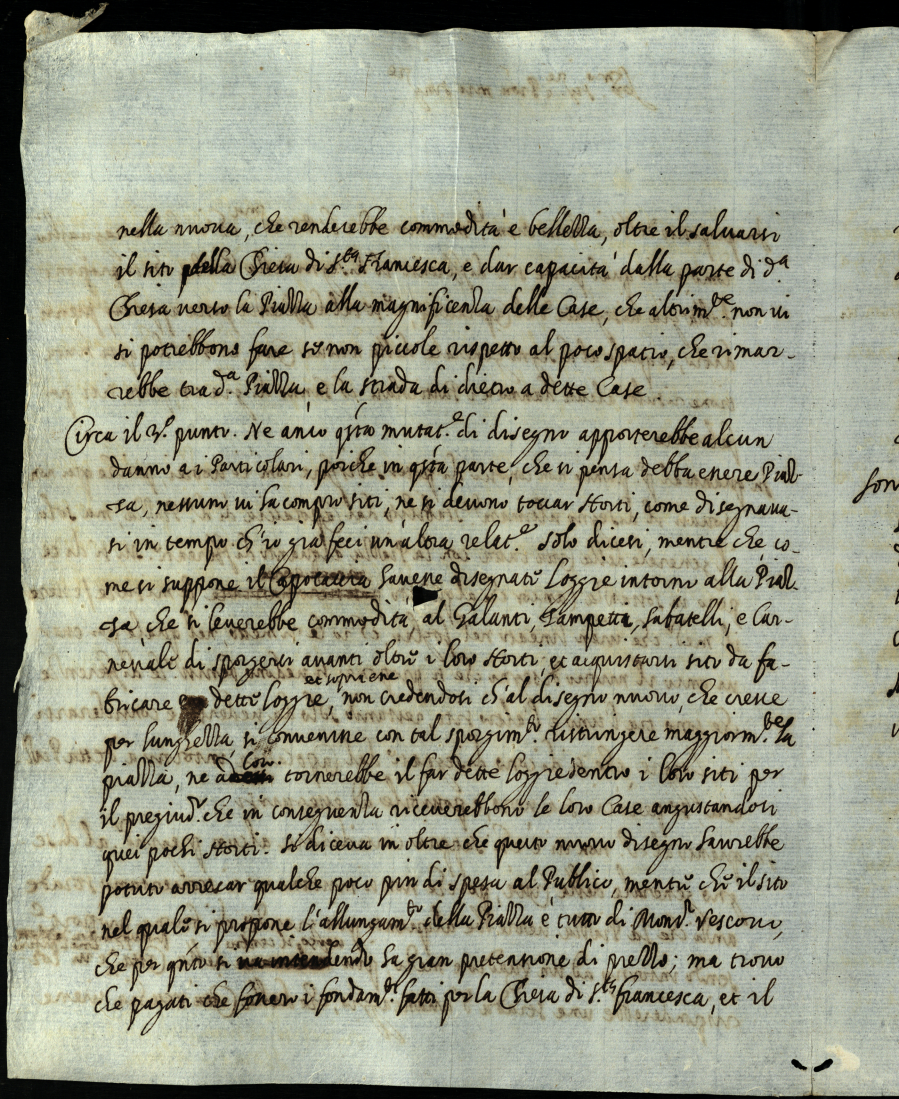 nella nuova, che renderebbe commodità e bellezza, oltre il salvarsi
il sito della Chiesa di S.ta Francesca, e dar capacità dalla parte di d.a
Chiesa verso la Piazza alla magnificenza delle Case, che altrim.te non vi
si potrebbono fare se non piccole rispetto al poco spatio, che rimar-
rebbe tra d.a Piazza, e la strada di dietro a dette Case.
Circa il 3.o punto. Ne anco q.sta mutat.e di disegno apporterebbe alcun
danno a i Particolari, poiche in q.sta parte, che si pensa debba essere Piaz-
za, nessuno vi ha compro siti, ne si devono toccar Horti, come disegnava-
si in tempo ch'io già feci un'altra relat.e Solo dicesi, mentre che co-
me si suppone il Capotaura havesse disegnate Loggie intorno alla Piaz-
za che si leverebbe commodità al Galanti, Zampetta, Sabatelli, e Car-
nevale di sporgersi avanti oltre i loro Horti, et acquistarsi sito da fa-
et sopra ne
bricare dette Loggie, non credendosi ch'al disegno nuovo, che cresce
per lunghezza si convenisse con tal sporgim.to ristringere maggiorm.te la
piazza, ne a loro tornerebbe il far dette Loggie dentro i loro siti per
il pregiud.o che in conseguenza riceverebbono le loro Case angustandosi
quei pochi Horti. Si diceva in oltre che questo nuovo disegno havrebbe
potuto arrecar qualche poco più di spesa al Publico, mentre che il sito
nel quale si propone l'allungam.to della Piazza è tutto di Mons.r Vescovo,
che per q.nto si dice ha gran pretensione di prezzo; ma trovo
che pagati che fossero i fondam.ti fatti per la Chiesa di S.ta francesca, et il